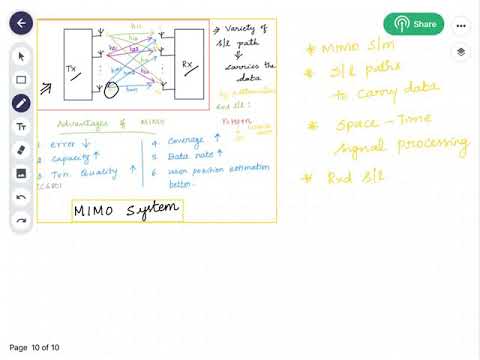 Share
Tx
Rx
h11
* Variety of
s/l path
↓
carries the
data
Rxd s/l :
Pattern
Advantages of MIMO
1 error ↓
2 Capacity ↑
3 Txn. Quality ↑
4 Coverage ↑
5 Data rate ↑
6 user position estimation
better.
MIMO System
* MIMO S/m
* S/l paths
to carry data
* Space - Time
signal processing
* Rxd s/l
Page 10 of 10